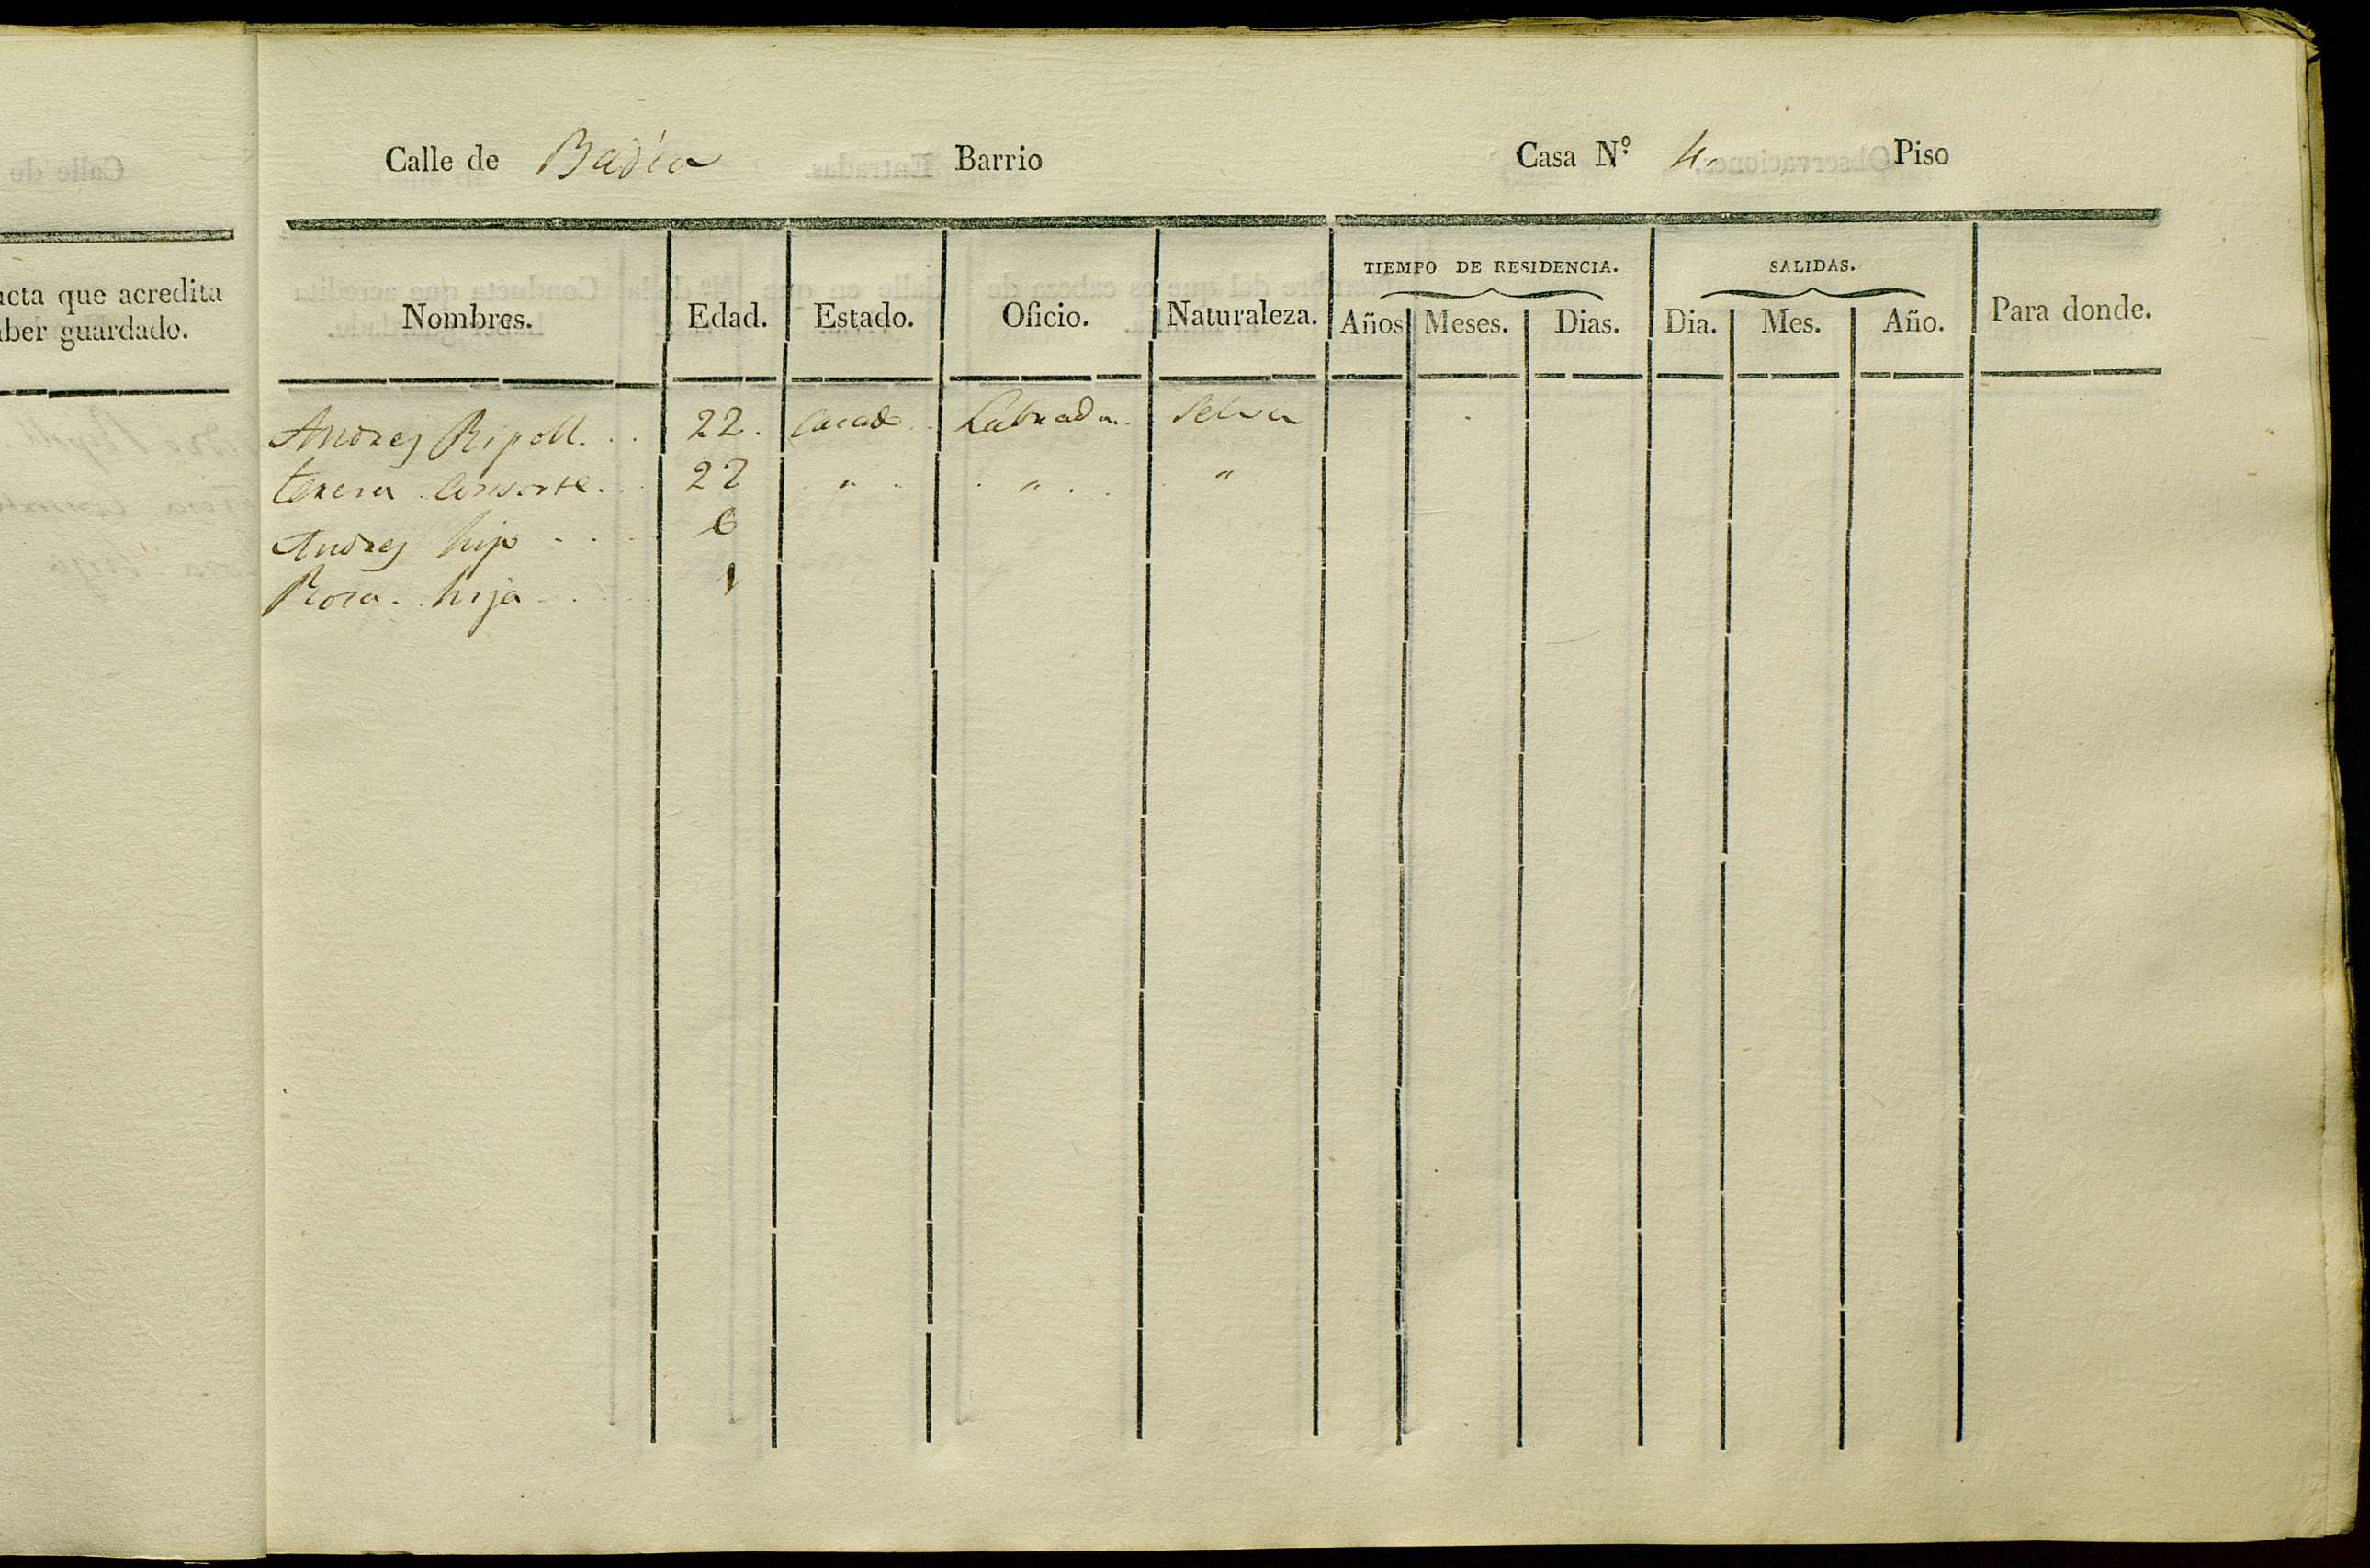 Calle de Badía Barrio Casa N.º 4. Piso
TIEMPO DE RESIDENCIA. SALIDAS.
Nombres. Edad. Estado. Oficio. Naturaleza. Años Meses. Dias. Dia. Mes. Año. Para donde.
Andres Ripoll. . . 22. Casado . . Labrador . . Selva
teresa consorte. . . 22 . " . . " . . . "
Andres hijo . . . 6
Rosa . . hija . . . 1
acta que acredita
aber guardado.